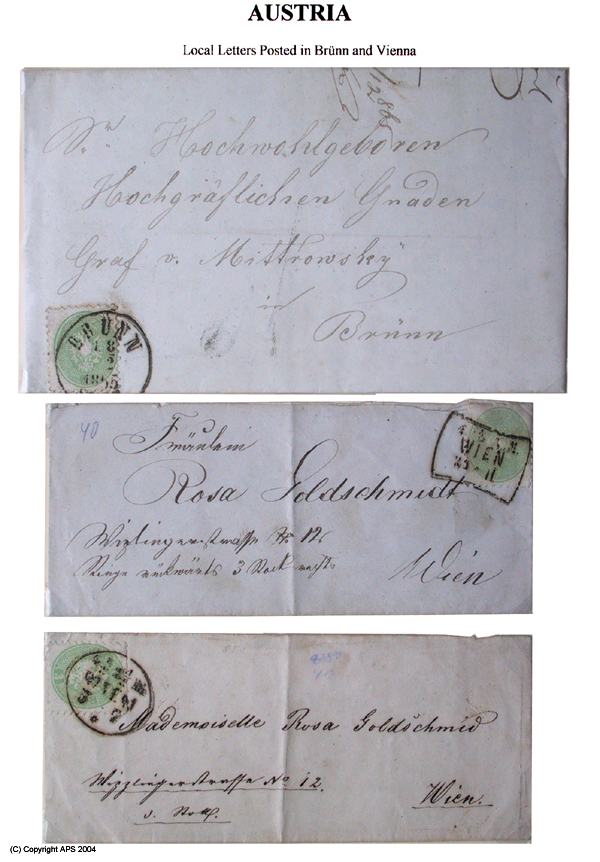 AUSTRIA
Local Letters Posted in Brünn and Vienna
Sr. Hochwohlgeboren
Hochgräflichen Gnaden
Graf v. Mittrowsky
in
Brünn
BRÜNN
1865
40
Fräulein
Rosa Goldschmidt
Wipplingerstrasse No 12
Stiege rückwärts 3 Stock rechts
Wien
WIEN
Mademoiselle Rosa Goldschmid
Wipplingerstrasse No 12.
3. Stock.
Wien.
(C) Copyright APS 2004